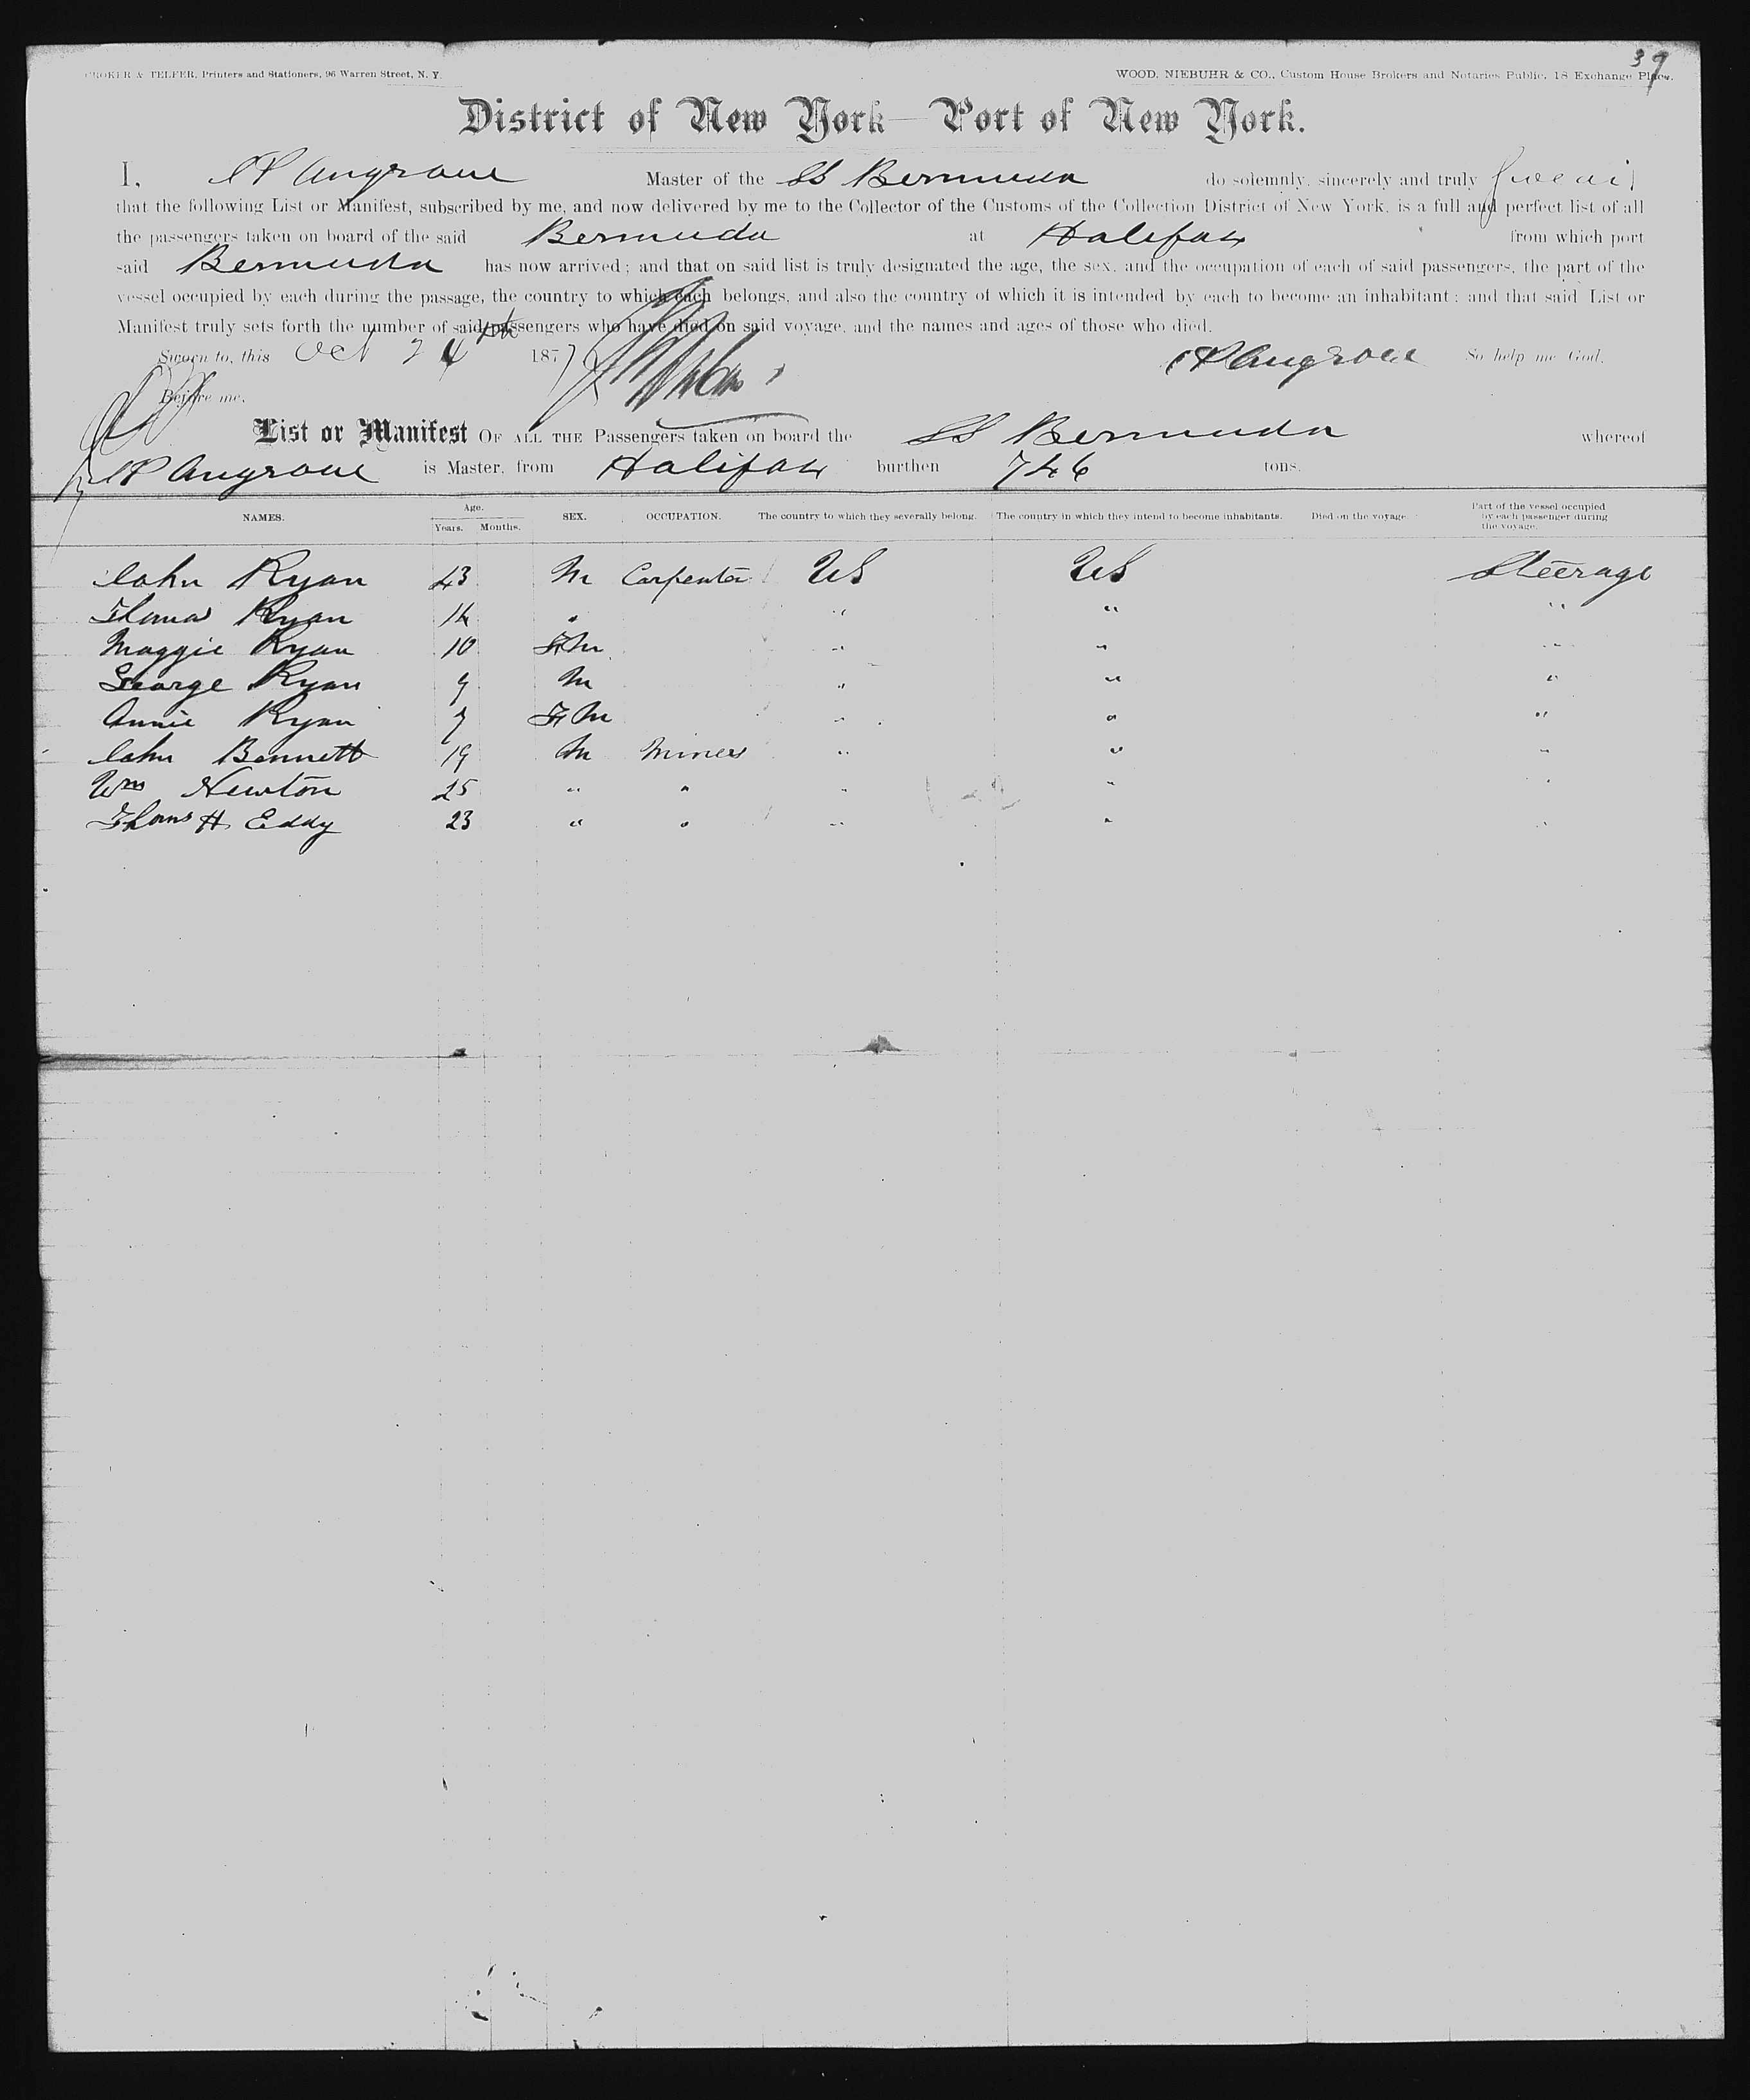 39
CROKER & TELFER, Printers and Stationers, 96 Warren Street, N. Y.
WOOD, NIEBUHR & CO., Custom House Brokers and Notaries Public, 18 Exchange Place.
District of New York—Port of New York.
I, Angrove Master of the SS Bermuda do solemnly, sincerely and truly swear
that the following List or Manifest, subscribed by me, and now delivered by me to the Collector of the Customs of the Collection District of New York, is a full and perfect list of all
the passengers taken on board of the said Bermuda at Halifax from which port
said Bermuda has now arrived; and that on said list is truly designated the age, the sex, and the occupation of each of said passengers, the part of the
vessel occupied by each during the passage, the country to which each belongs, and also the country of which it is intended by each to become an inhabitant; and that said List or
Manifest truly sets forth the number of said passengers who have died on said voyage, and the names and ages of those who died.
Sworn to, this Oct 24th 1877 Angrove So help me God.
Before me.
List or Manifest OF ALL THE Passengers taken on board the SS Bermuda whereof
Angrove is Master, from Halifax burthen 746 tons.
NAMES. Age. Years. Months. SEX. OCCUPATION. The country to which they severally belong. The country in which they intend to become inhabitants. Died on the voyage. Part of the vessel occupied by each passenger during the voyage.
John Ryan 43 M Carpenter US US Steerage
Thomas Ryan 14 " " " "
Maggie Ryan 10 Fm " " "
George Ryan 9 M " " "
Annie Ryan 7 Fm " " "
John Bennett 19 M Miner " " "
Wm Newton 25 " " " " "
Thoms H Eddy 23 " " " " "